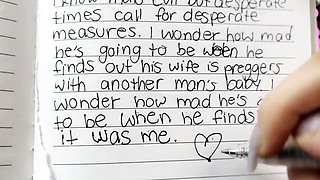 I know
but desperate
times call for desperate
measures. I wonder how mad
he's going to be when he
finds out his wife is preggers
with another man's baby. I
wonder how mad he's
to be when he finds
it was me. ♡